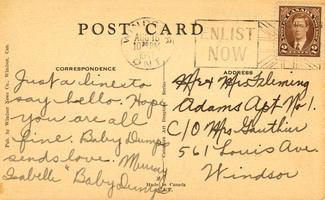 POST CARD
WINDSOR
AUG 16
10 PM
ONT.
ENLIST
NOW
CANADA
2 2
CORRESPONDENCE
ADDRESS
Just a line to
say hello. Hope
you are all
fine. Baby Dumps
sends love. Murray
Isabelle "Baby Dumps"
Mr & Mrs Fleming
Adams Apt No 1.
C/O Mrs Gauthier
561 Louis Ave.
Windsor
Pub. by Windsor News Co., Windsor, Ont.
Made in Canada